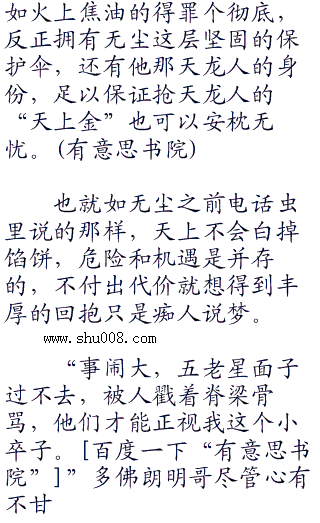 如火上焦油的得罪个彻底，
反正拥有无尘这层坚固的保
护伞，还有他那天龙人的身
份，足以保证抢天龙人的
“天上金”也可以安枕无
忧。(有意思书院)
也就如无尘之前电话虫
里说的那样，天上不会白掉
馅饼，危险和机遇是并存
的，不付出代价就想得到丰
厚的回抱只是痴人说梦。
www.shu008.com
“事闹大，五老星面子
过不去，被人戳着脊梁骨
骂，他们才能正视我这个小
卒子。[百度一下“有意思书
院”]”多佛朗明哥尽管心有
不甘